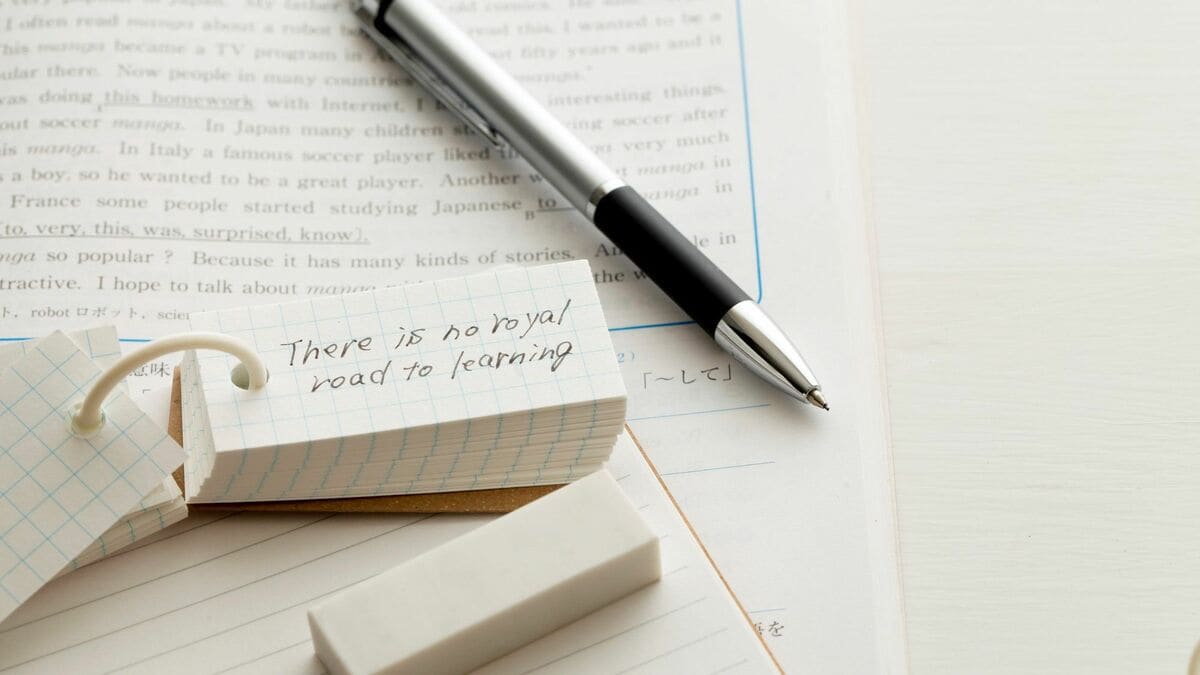 popular in Japan. My father old comics. He said,
I often read manga about a robot read this, I wanted to be a
This manga became a TV program in about fifty years ago and it
ular there. Now people in many countries manga."
was doing this homework with Internet, I interesting things.
out soccer manga. In Japan many children playing soccer after
is manga. In Italy a famous soccer player liked very much
s a boy, so he wanted to be a great player. Another manga in
France some people started studying Japanese to manga in
B
[to, very, this, was, surprised, know].
nga so popular ? Because it has many kinds of stories. in
tractive. I hope to talk about manga the
ト, robot ロボット,
There is no royal
road to learning
意味
2)
「〜して」
を